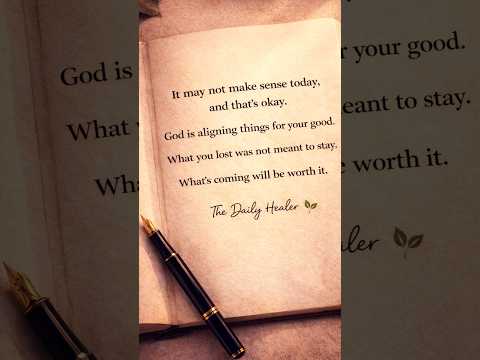 It may not make sense today,
and that's okay.
God is aligning things for your good.
What you lost was not meant to stay.
What's coming will be worth it.
The Daily Healer
God is
for your good.
What you
meant to stay.
What's
worth it.